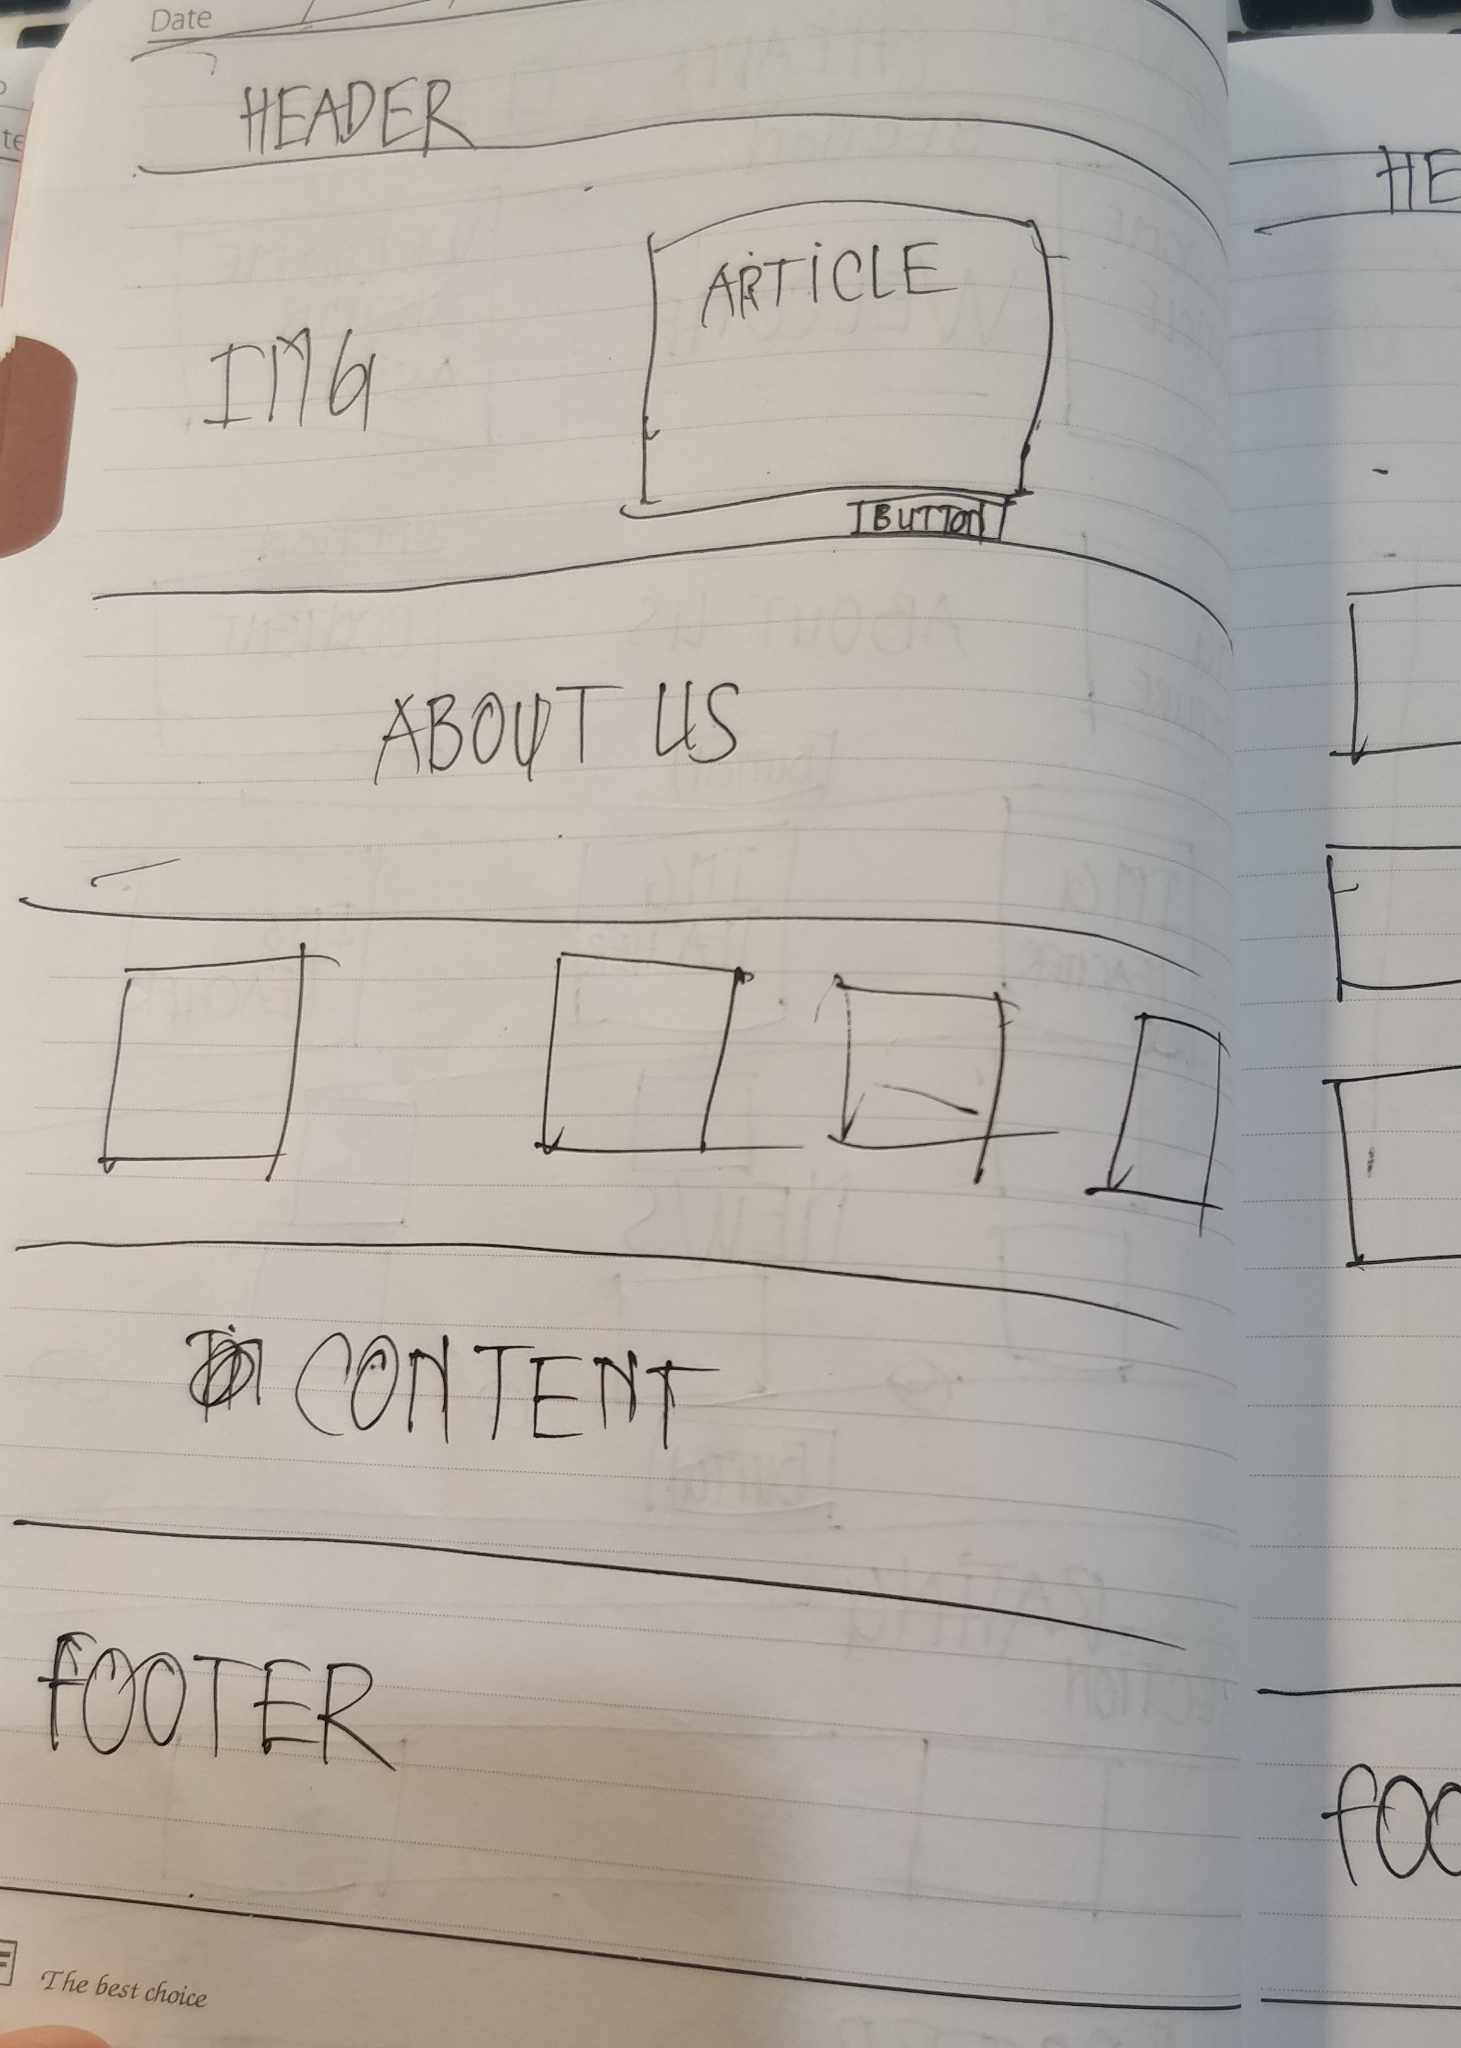 Date
HEADER
ARTICLE
IMG
BUTTON
ABOUT US
CONTENT
FOOTER
The best choice
te
HE
FOO